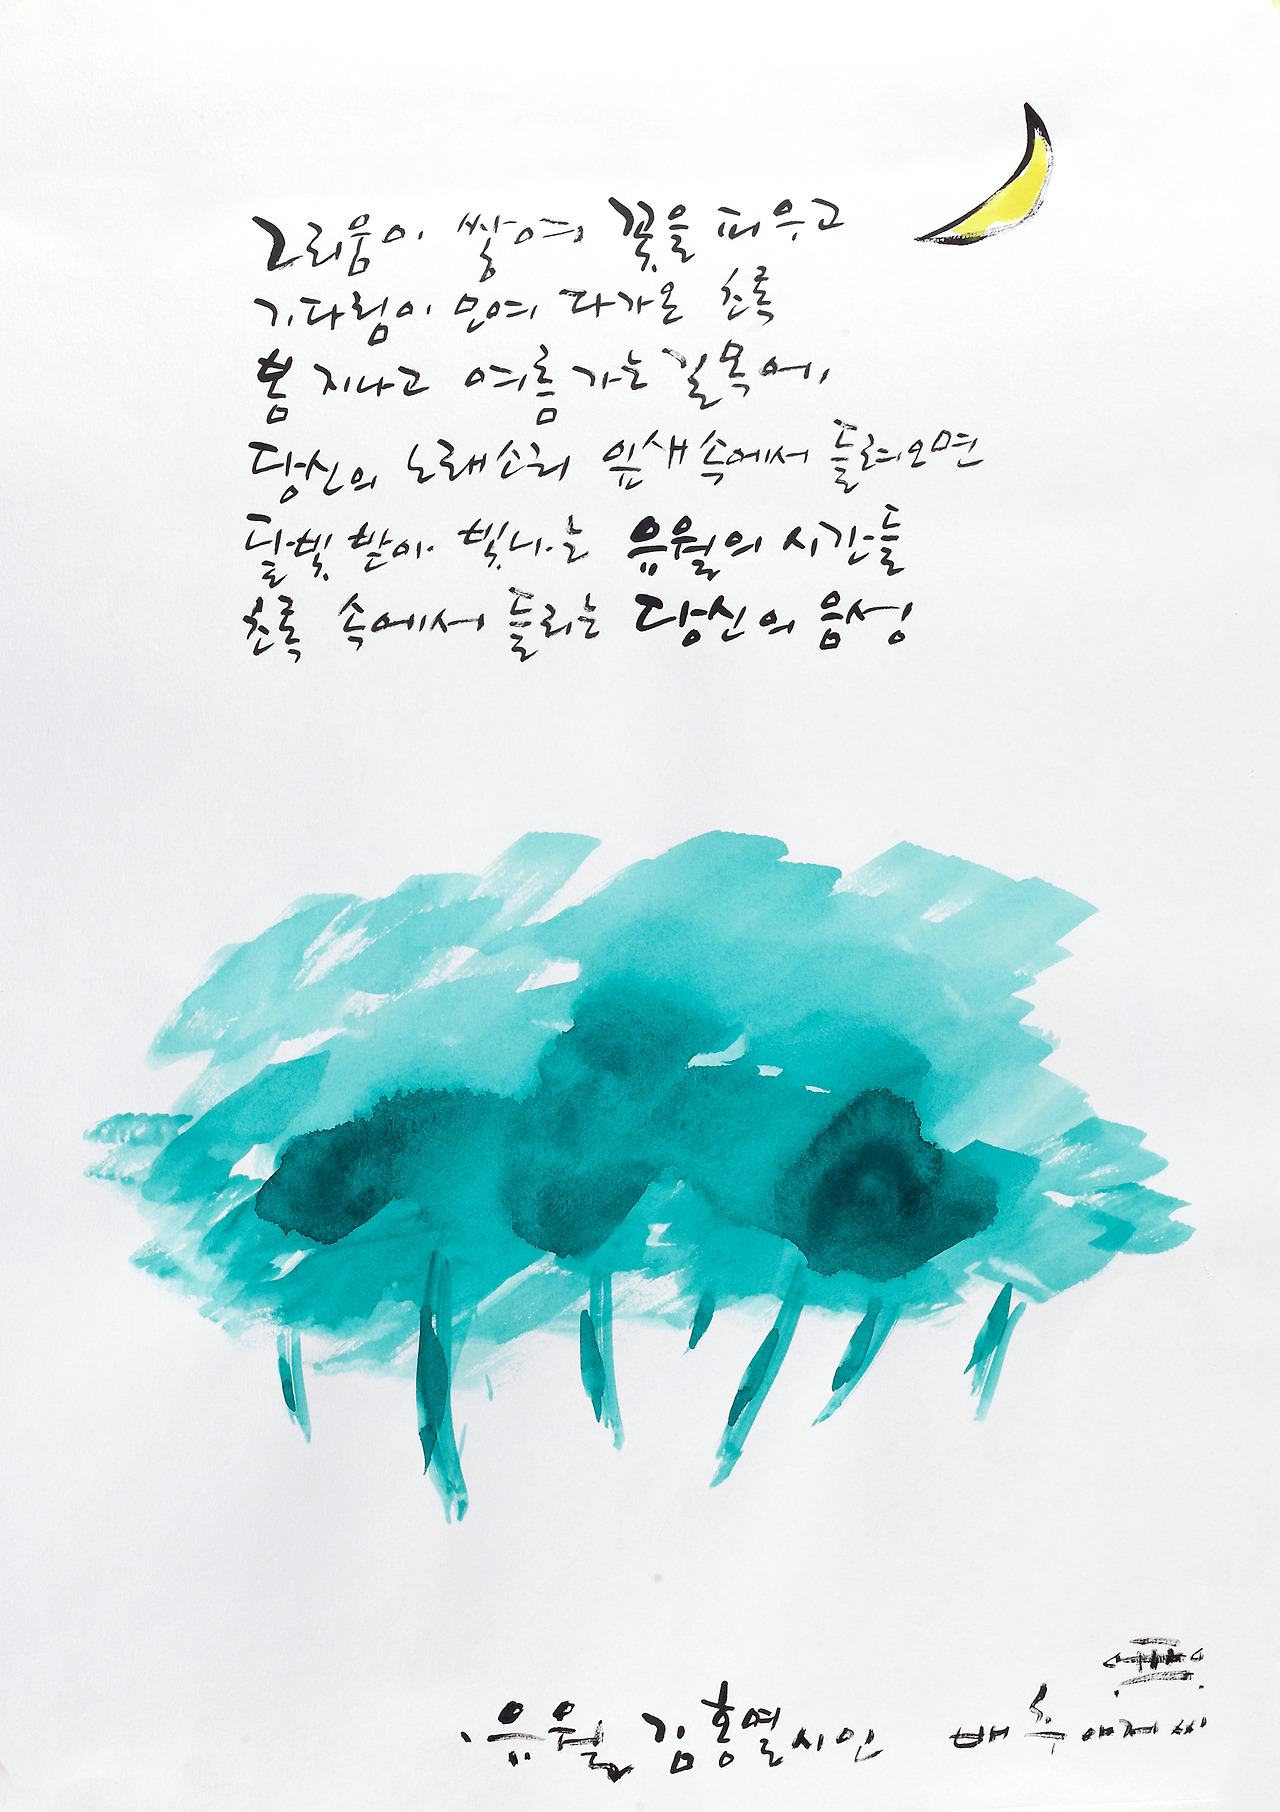 그리움이 쌓여 꽃을 피우고
기다림이 모여 다가온 초록
봄 지나고 여름 가는 길목에,
당신의 노래소리 잎새속에서 들려오면
달빛 받아 빛나는 유월의 시간들
초록 속에서 들리는 당신의 음성
유월 김홍열시인 배추아저씨